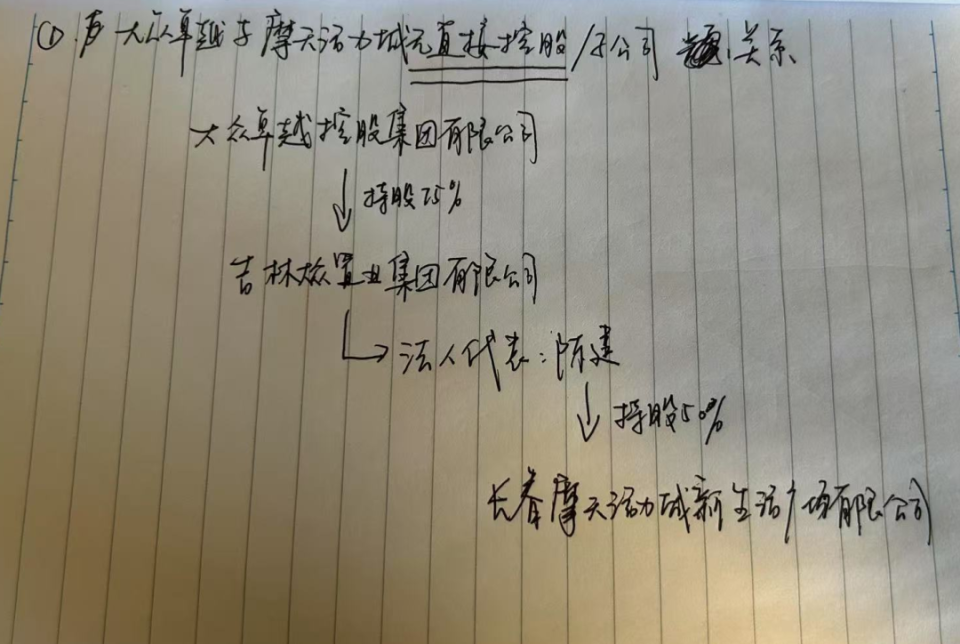 ① 大众卓越与摩天活力城无直接控股/子公司 关系
大众卓越控股集团有限公司
持股75%
吉林大众置业集团有限公司
法人代表:陈建
持股50%
长春摩天活力城新生活广场有限公司